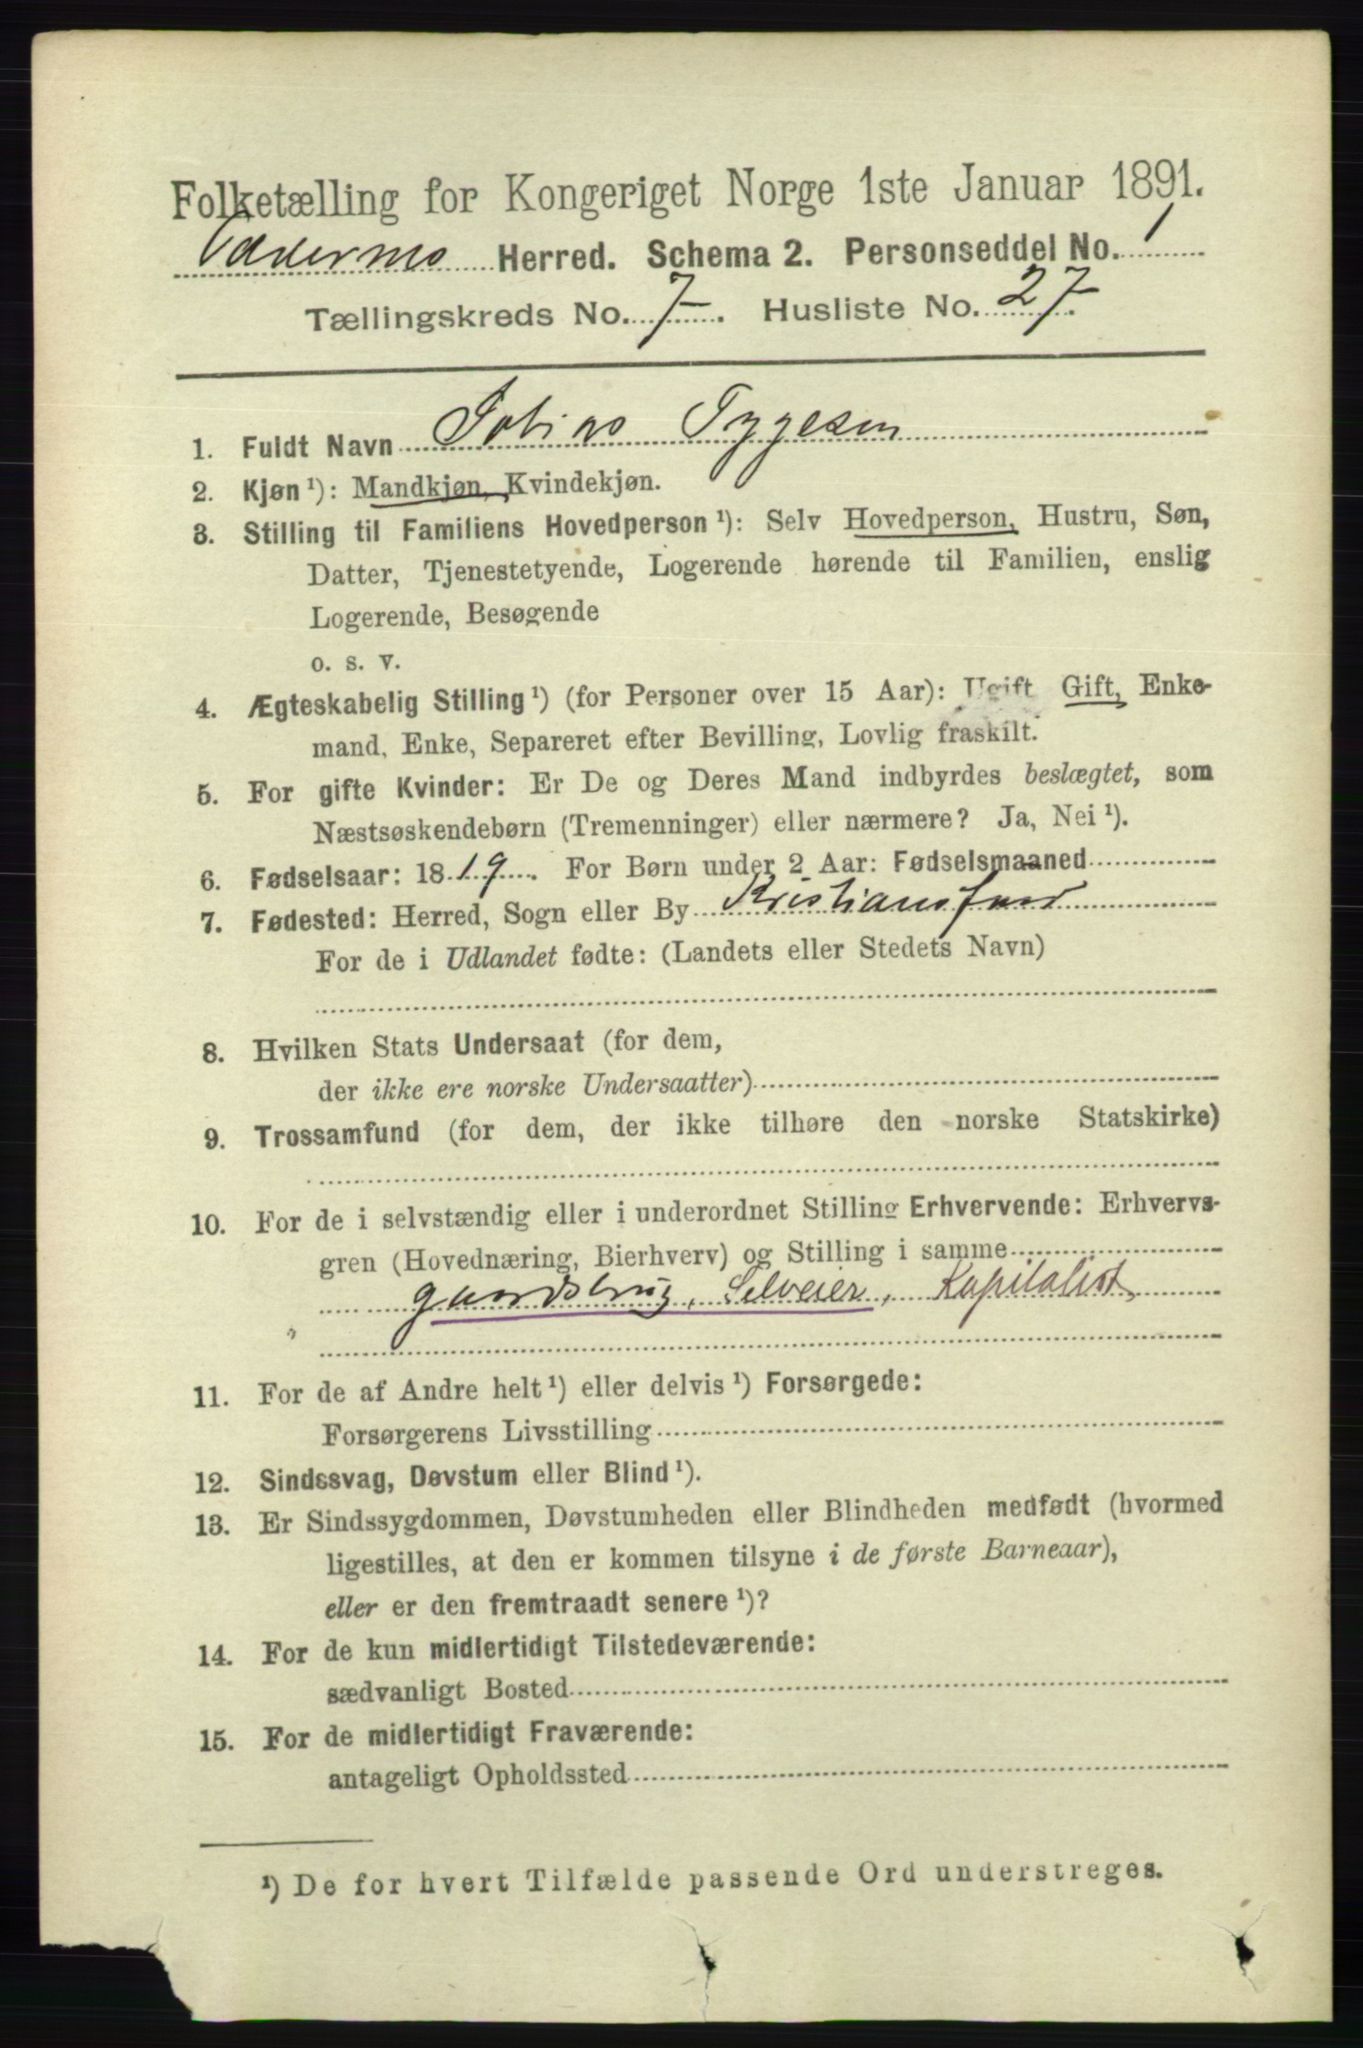 Folketælling for Kongeriget Norge 1ste Januar 1891.
Herred. Schema 2. Personseddel No. 1
Tællingskreds No. 7. Husliste No. 27.
1. Fuldt Navn Tobias Tygesen
2. Kjøn ¹): Mandkjøn, Kvindekjøn.
3. Stilling til Familiens Hovedperson ¹): Selv Hovedperson, Hustru, Søn,
Datter, Tjenestetyende, Logerende hørende til Familien, enslig
Logerende, Besøgende
o. s. v.
4. Ægteskabelig Stilling ¹) (for Personer over 15 Aar): Ugift Gift, Enke-
mand, Enke, Separeret efter Bevilling, Lovlig fraskilt.
5. For gifte Kvinder: Er De og Deres Mand indbyrdes beslægtet, som
Næstsøskendebørn (Tremenninger) eller nærmere? Ja, Nei ¹).
6. Fødselsaar: 1819. For Børn under 2 Aar: Fødselsmaaned
7. Fødested: Herred, Sogn eller By Kristiansfand
For de i Udlandet fødte: (Landets eller Stedets Navn)
8. Hvilken Stats Undersaat (for dem,
der ikke ere norske Undersaatter)
9. Trossamfund (for dem, der ikke tilhøre den norske Statskirke)
10. For de i selvstændig eller i underordnet Stilling Erhvervende: Erhvervs-
gren (Hovednæring, Bierhverv) og Stilling i samme
gaardsbrug, Selveier, Kapitalist
11. For de af Andre helt ¹) eller delvis ¹) Forsørgede:
Forsørgerens Livsstilling
12. Sindssvag, Døvstum eller Blind ¹).
13. Er Sindssygdommen, Døvstumheden eller Blindheden medfødt (hvormed
ligestilles, at den er kommen tilsyne i de første Barneaar),
eller er den fremtraadt senere ¹)?
14. For de kun midlertidigt Tilstedeværende:
sædvanligt Bosted
15. For de midlertidigt Fraværende:
antageligt Opholdssted
¹) De for hvert Tilfælde passende Ord understreges.